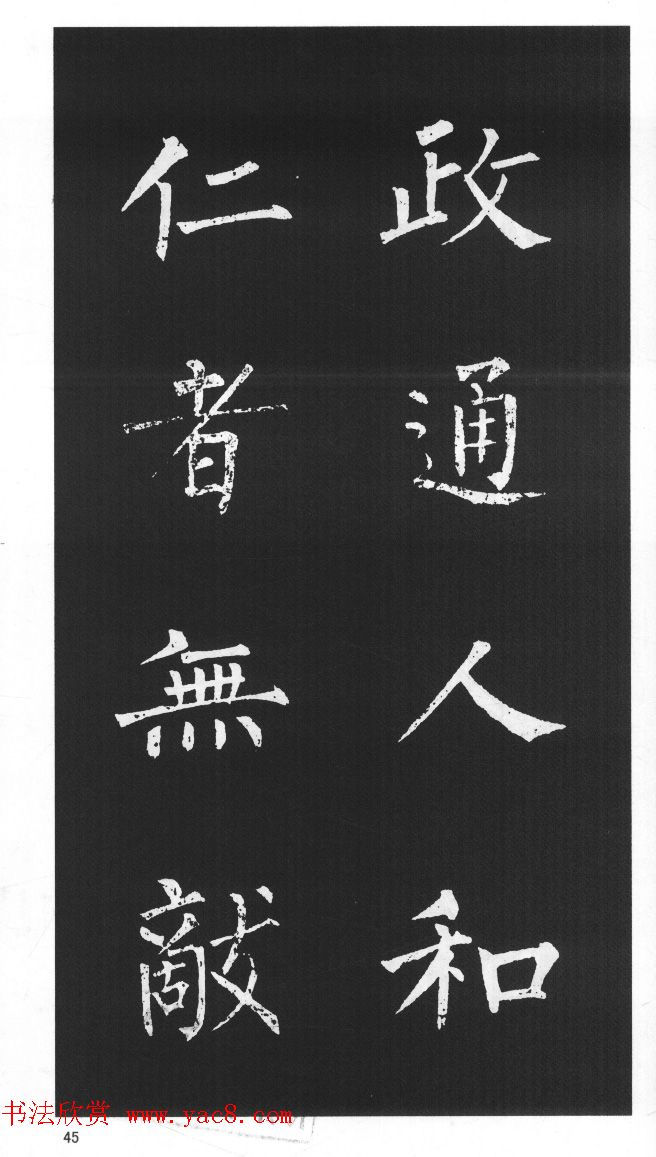 政通人和
仁者無敵
书法欣赏 www.yac8.com
45